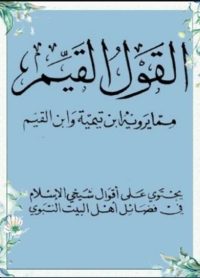 القَوْلُ القَيِّم
ممَّا يرويه ابن تيمية وابن القيم
يحتوي على أقوال شيخي الإسلام
في فضائل أهل البيت النبوي